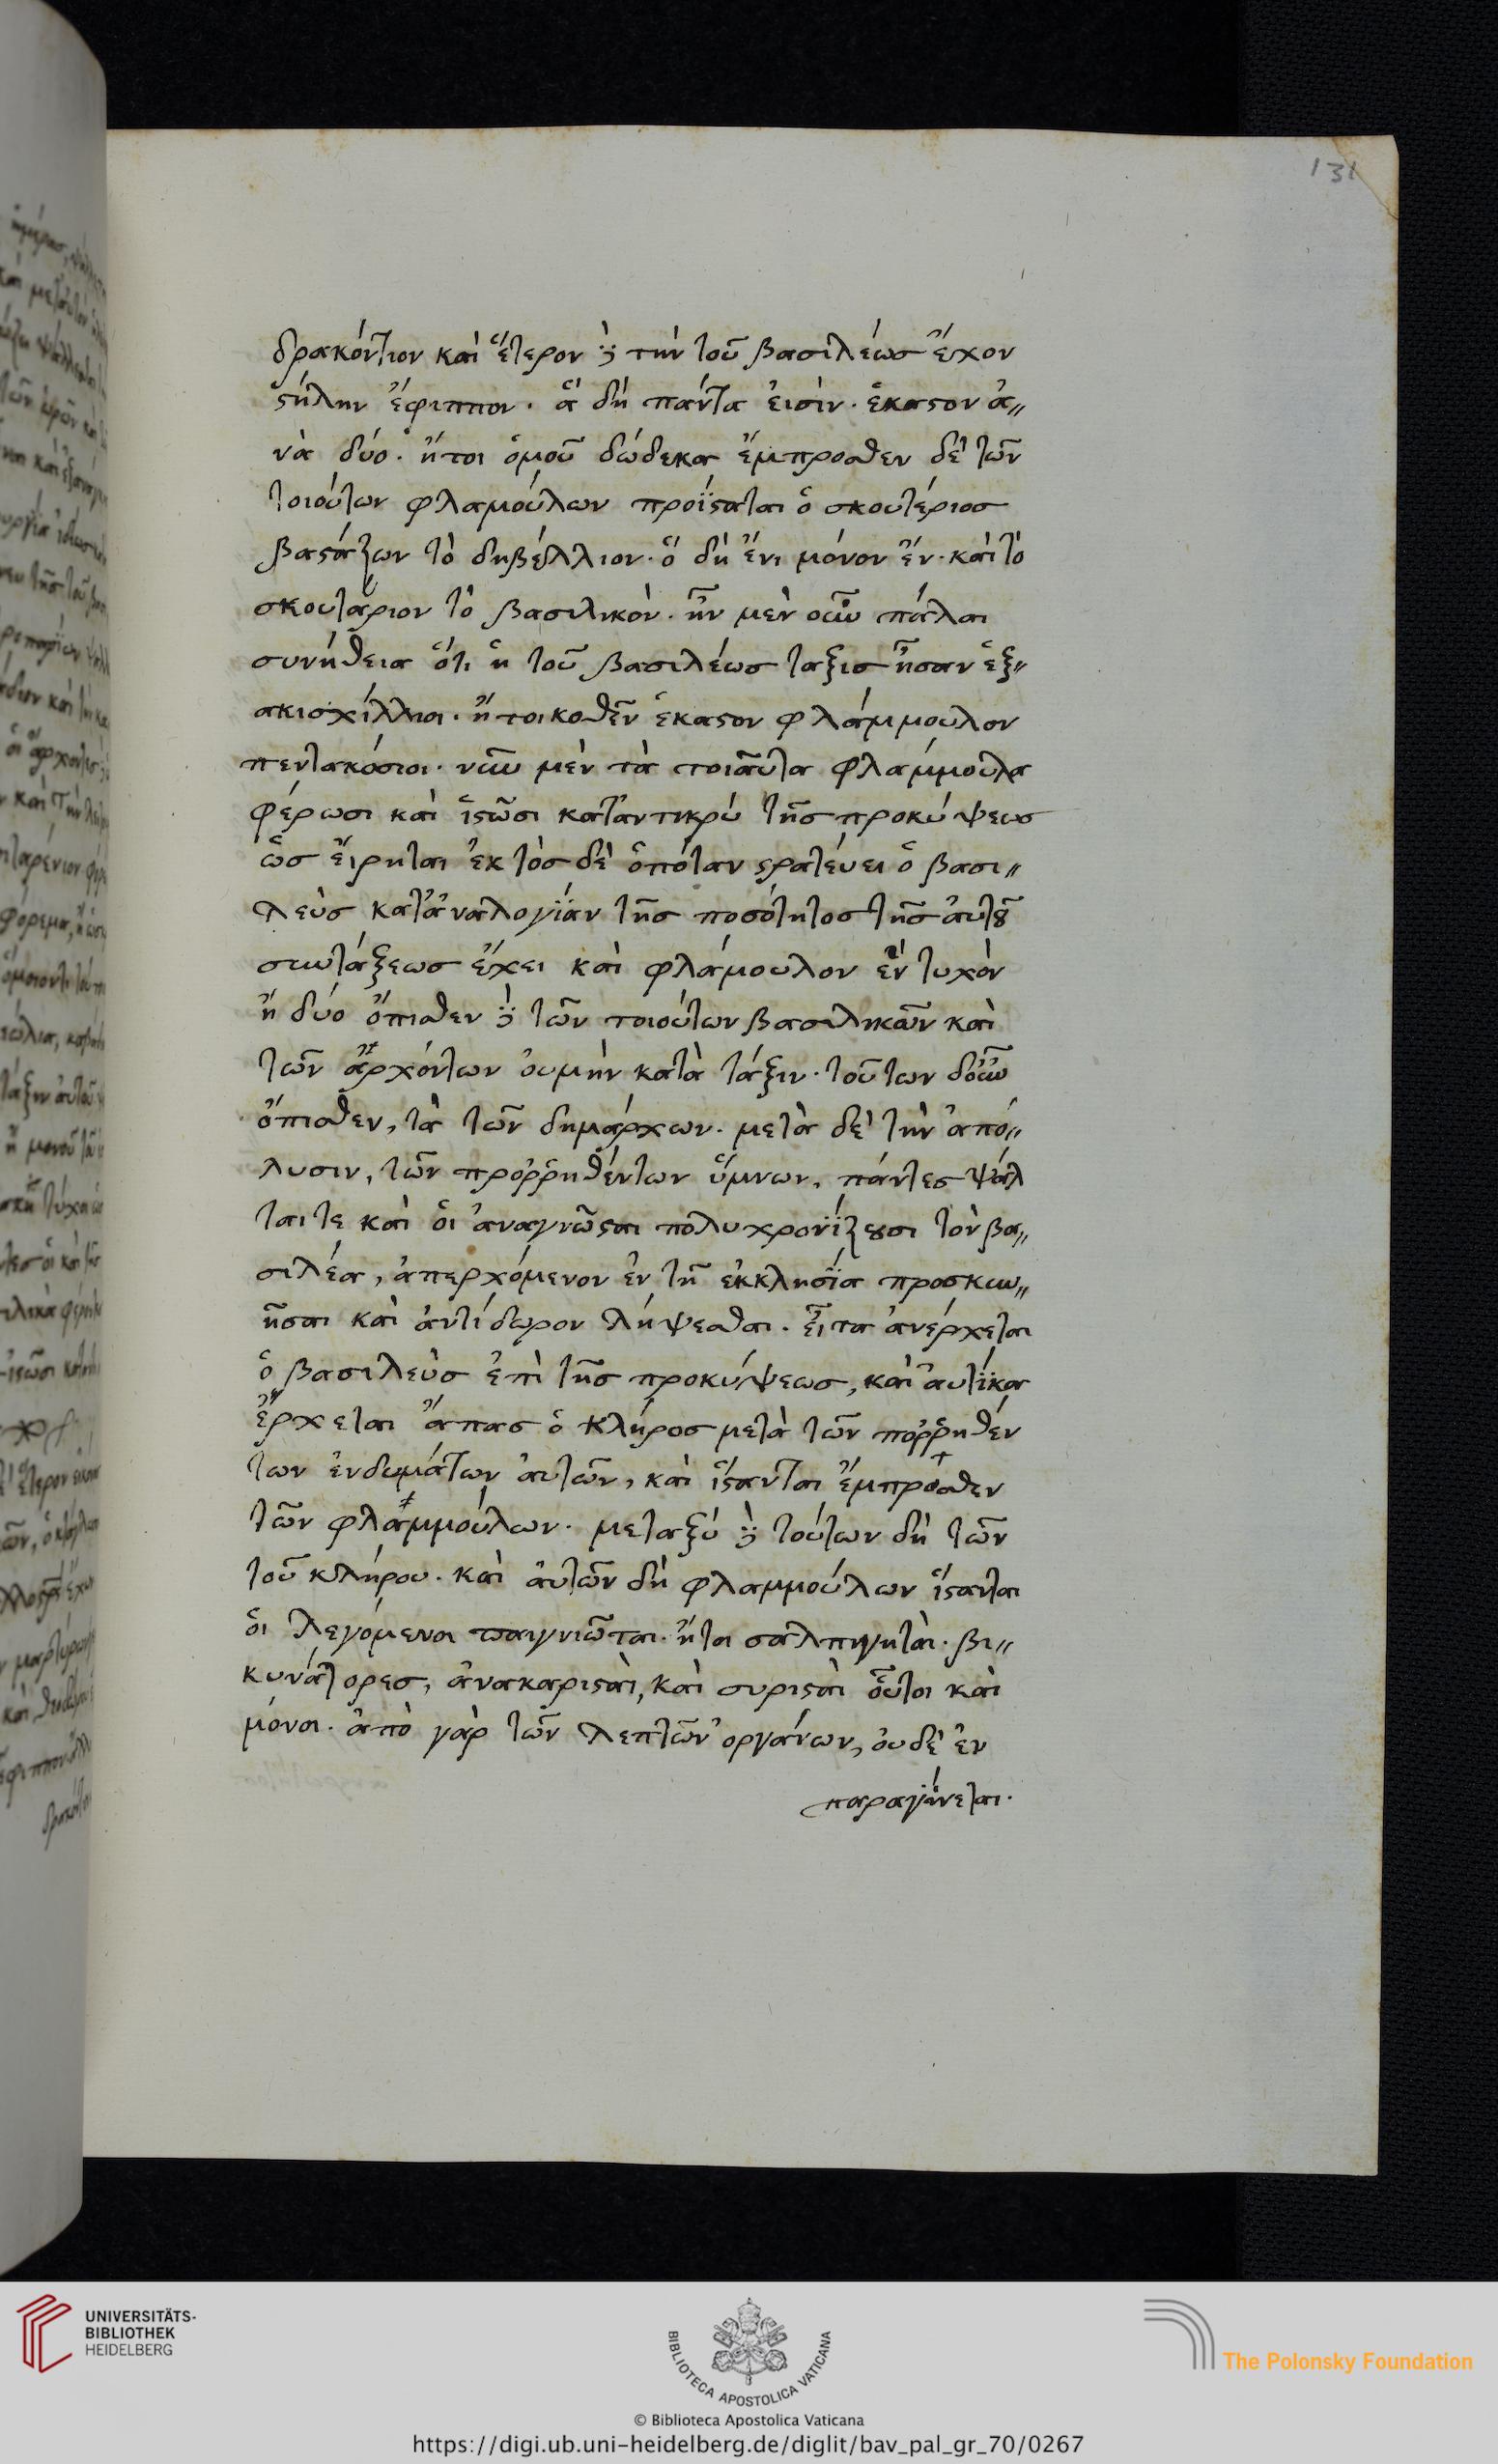 131
δρακόντιον καὶ ἕτερον ·ȷ· τὴν τοῦ βασιλέως ἔχον
στήλην ἔφιππον· ἃ δὴ πάντα ἐισὶν· ἕκαστον ἀ〃
νὰ δύο· ἤτοι ὁμοῦ δώδεκα ἔμπροσθεν δὲ τῶν
τοιούτων φλαμούλων προΐσταται ὁ σκουτέριος
βαστάζων τὸ διβέλλιον· ὃ δὴ ἔνι μόνον ἕν· καὶ τὸ
σκουτάριον τὸ βασιλικὸν· ἦν μὲν οὖν πάλαι
συνήθεια ὅτι ἡ τοῦ βασιλέως τάξις ἦσαν ἑξ〃
ακισχίλλιοι· ἤτοι καθἓν ἕκαστον φλάμμουλον
πεντακόσιοι· νῦν μὲν τὰ τοιαῦτα φλάμμουλα
φέρωσι καὶ ἱστῶσι κατἀντικρύ τῆς προκύψεως
ὡς εἴρηται ἐκτὸς δὲ ὁπόταν στρατεύει ὁ βασι〃
λεὺς κατἀναλογίαν τῆς ποσότητος τῆς ἀυτοῦ
συντάξεως ἔχει καὶ φλάμουλον ἓν τυχὸν
ἢ δύο ὄπισθεν ·ȷ· τῶν τοιούτων βασιλικῶν καὶ
τῶν ἀρχόντων ὀυμὴν κατὰ τάξιν· τούτων δοῦν
ὄπισθεν, τὰ τῶν δημάρχων· μετὰ δὲ τὴν ἀπό〃
λυσιν, τῶν προῤῥηθέντων ὕμνων, πάντες ψάλ
ται τε καὶ ὁι ἀναγνῶσται πολυχρονΐζουσι τὸν βα〃
σιλέα, ἀπερχόμενον ἐν τῆ ἐκκλησΐα προσκυν〃
ῆσαι καὶ ἀντίδωρον λήψεσθαι· εἶτα ἀνέρχεται
ὁ βασιλεὺς ἐπὶ τῆς προκύψεως, καὶ ἀυτΐκα
ἔρχεται ἅπας ὁ κλήρος μετὰ τῶν ποῤῥηθέν
των ἐνδυμάτων ἀυτῶν, καὶ ἵστανται ἔμπροσθεν
τῶν φλαμμούλων· μεταξύ ·ȷ· τούτων δὴ τῶν
τοῦ κλήρου· καὶ ἀυτῶν δὴ φλαμμούλων ἵστανται
ὁι λεγόμενοι παιγνιῶται· ἤτοι σαλπιγκταὶ· βι〃
κυνάτορες, ἀνακαρισταὶ, καὶ συρισταὶ οὗτοι καὶ
μόνοι· ἀπὸ γὰρ τῶν λεπτῶν ὀργάνων, ὀυδὲ ἐν
παραγΐνεται·
UNIVERSITÄTS-
BIBLIOTHEK
HEIDELBERG
BIBLIOTECA APOSTOLICA VATICANA
The Polonsky Foundation
© Biblioteca Apostolica Vaticana
https://digi.ub.uni-heidelberg.de/diglit/bav_pal_gr_70/0267